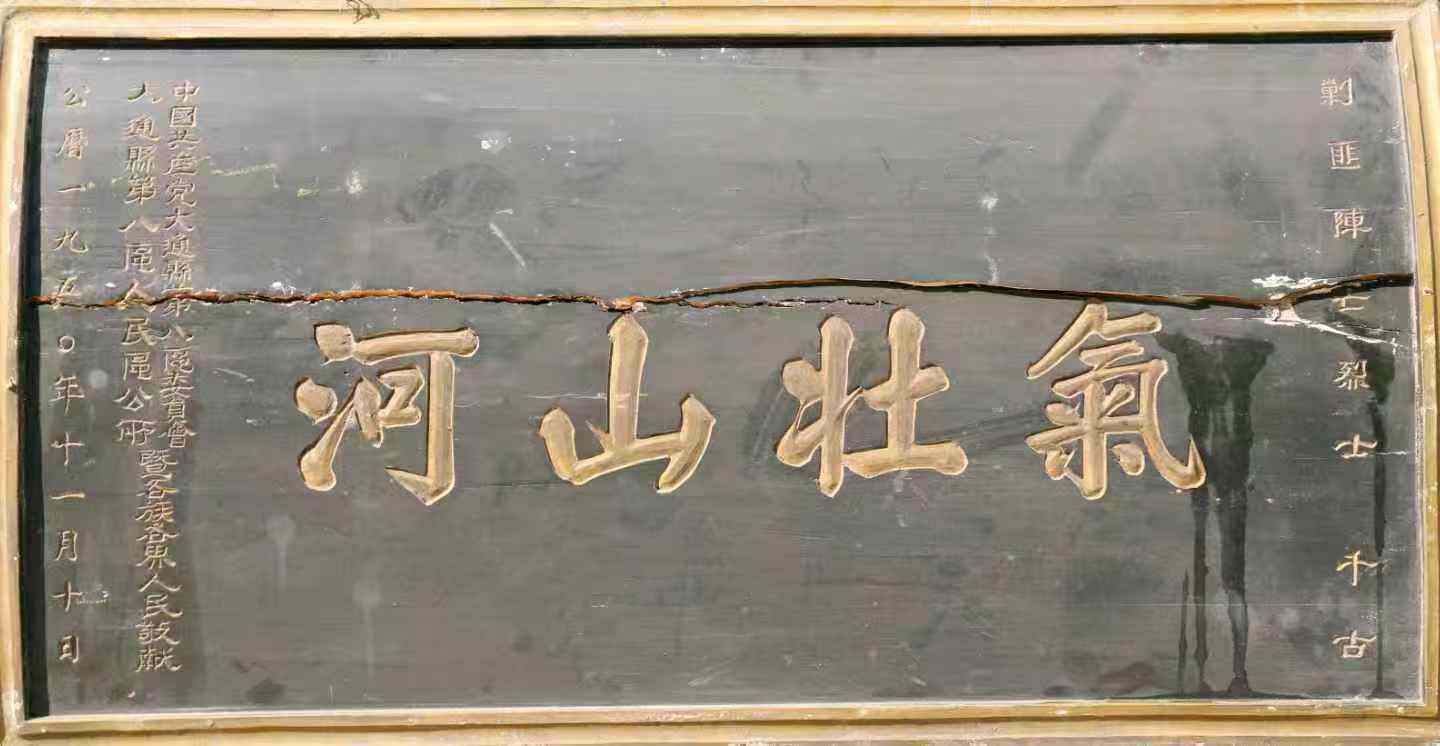 剿匪陣亡烈士千古
氣壯山河
中國共産党大通縣第八區委員會
大通縣第八區人民區公所
暨各族各界人民敬献
公曆一九五〇年十一月十日